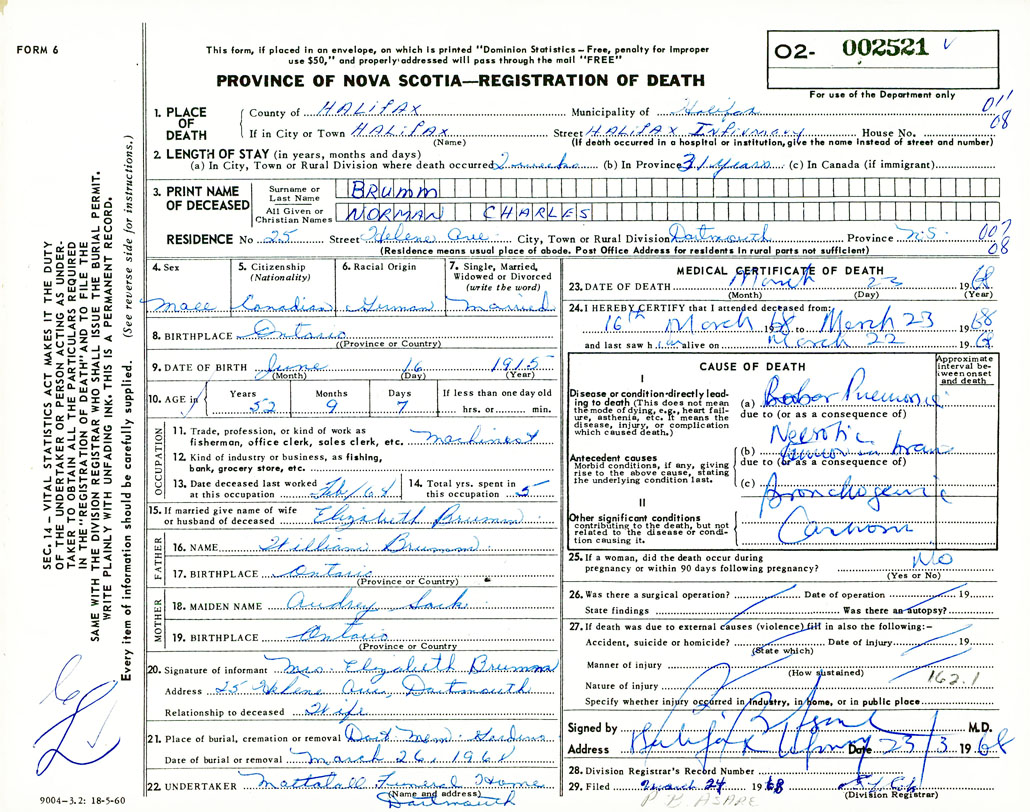 FORM 6
This form, if placed in an envelope, on which is printed "Dominion Statistics – Free, penalty for improper
use $50," and properly addressed will pass through the mail "FREE"
PROVINCE OF NOVA SCOTIA—REGISTRATION OF DEATH
02- 002521
For use of the Department only
1. PLACE OF DEATH County of HALIFAX Municipality of Halifax 011
If in City or Town HALIFAX (Name) Street HALIFAX Infirmary House No. 08
(If death occurred in a hospital or institution, give the name instead of street and number)
2. LENGTH OF STAY (in years, months and days)
(a) In City, Town or Rural Division where death occurred 2 weeks (b) In Province 31 years (c) In Canada (if immigrant)
3. PRINT NAME OF DECEASED
Surname or Last Name BRUMM
All Given or Christian Names NORMAN CHARLES
RESIDENCE No 25 Street Helene Ave. City, Town or Rural Division Dartmouth Province N.S. 007
(Residence means usual place of abode. Post Office Address for residents in rural parts not sufficient) 08
4. Sex Male
5. Citizenship (Nationality) Canadian
6. Racial Origin German
7. Single, Married, Widowed or Divorced (write the word) Married
8. BIRTHPLACE Ontario
(Province or Country)
9. DATE OF BIRTH June 16 1915
(Month) (Day) (Year)
10. AGE in Years 52 Months 9 Days 7 If less than one day old hrs. or min.
OCCUPATION
11. Trade, profession, or kind of work as
fisherman, office clerk, sales clerk, etc. Machinest
12. Kind of industry or business, as fishing,
bank, grocery store, etc.
13. Date deceased last worked at this occupation Feb/64
14. Total yrs. spent in this occupation 5
15. If married give name of wife
or husband of deceased Elizabeth Brumm
FATHER
16. NAME William Brumm
17. BIRTHPLACE Ontario
(Province or Country)
MOTHER
18. MAIDEN NAME Audrey
19. BIRTHPLACE Ontario
(Province or Country
20. Signature of informant Mrs. Elizabeth Brumm
Address 25 Helene Ave, Dartmouth
Relationship to deceased Wife
21. Place of burial, cremation or removal Dart Mem. Gardens
Date of burial or removal March 26, 1968
22. UNDERTAKER Mattatall Funeral Home
(Name and address)
Dartmouth
MEDICAL CERTIFICATE OF DEATH
23. DATE OF DEATH March 23 1968
(Month) (Day) (Year)
24. I HEREBY CERTIFY that I attended deceased from:
16th March 1968 to March 23 1968
and last saw him alive on March 22 1968
CAUSE OF DEATH
Approximate interval between onset and death
I
Disease or condition directly leading to death (This does not mean the mode of dying, e.g., heart failure, asthenia, etc. It means the disease, injury, or complication which caused death.)
(a) Lobar Pneumonia
due to (or as a consequence of)
Antecedent causes
Morbid conditions, if any, giving rise to the above cause, stating the underlying condition last.
(b) Necrotic tumor in brain
due to (or as a consequence of)
(c) Bronchogenic
II
Other significant conditions
contributing to the death, but not related to the disease or condition causing it.
Carcinom
25. If a woman, did the death occur during
pregnancy or within 90 days following pregnancy? No
(Yes or No)
26. Was there a surgical operation? Date of operation 19
State findings Was there an autopsy?
27. If death was due to external causes (violence) fill in also the following:-
Accident, suicide or homicide? Date of injury 19
(State which)
Manner of injury
(How sustained)
Nature of injury 162.1
Specify whether injury occurred in industry, in home, or in public place
Signed by M.D.
Address Halifax Date 23/3 1968
28. Division Registrar's Record Number
29. Filed March 24 1968
(Division Registrar)
SEC. 14 – VITAL STATISTICS ACT MAKES IT THE DUTY
OF THE UNDERTAKER OR PERSON ACTING AS UNDER-
TAKER TO OBTAIN ALL THE PARTICULARS REQUIRED
IN THE "REGISTRATION OF DEATH" AND TO FILE THE
SAME WITH THE DIVISION REGISTRAR WHO SHALL ISSUE THE BURIAL PERMIT.
WRITE PLAINLY WITH UNFADING INK. THIS IS A PERMANENT RECORD.
Every item of information should be carefully supplied. (See reverse side for instructions.)
9004–3.2: 18-5-60